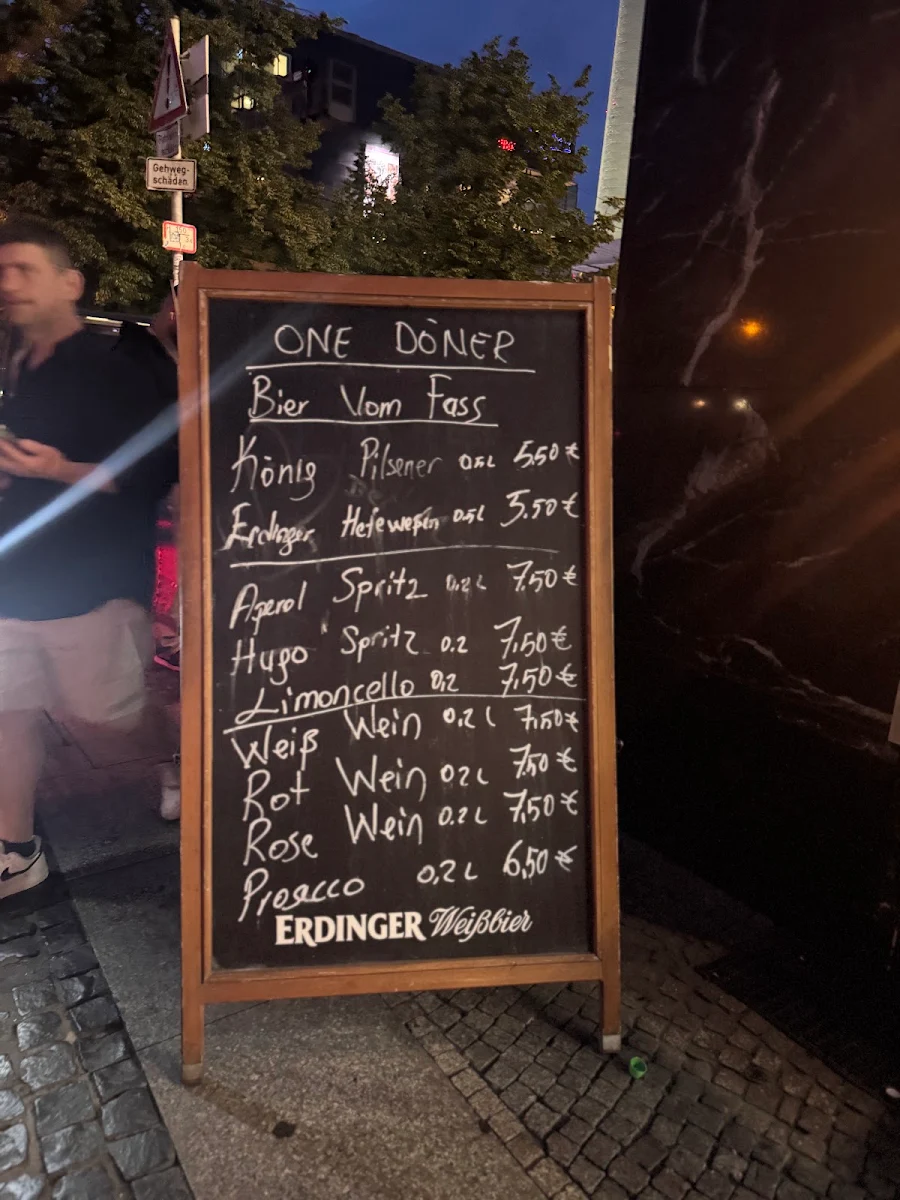 Gehweg-
schäden
ONE DÖNER
Bier Vom Fass
König Pilsener 0,5L 5,50 €
Erdinger Hefeweßen 0.5L 5.50 €
Aperol Spritz 0,2 L 7,50 €
Hugo Spritz 0.2 7,50 €
Limoncello 0,2 7,50 €
Weiß Wein 0,2 L 7,50 €
Rot Wein 0,2 L 7,50 €
Rose Wein 0.2 L 7,50 €
Prosecco 0,2 L 6,50 €
ERDINGER Weißbier